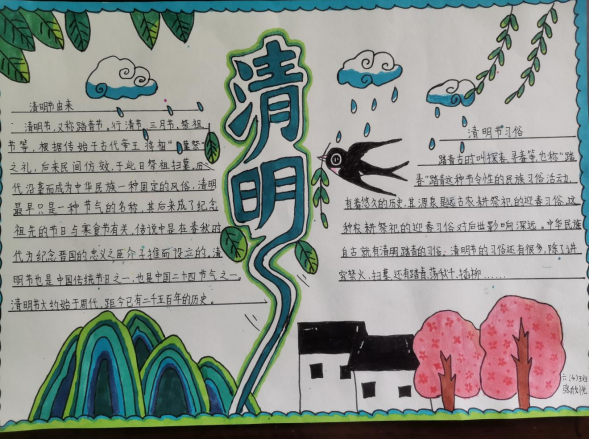 清明
清明节由来
清明节,又称踏青节、行清节、三月节、祭祖
节等,根据传始于古代帝王将相"墓祭"
之礼,后来民间仿效,于此日祭祖扫墓,历
代沿袭而成为中华民族一种固定的风俗。清明
最早只是一种节气的名称,其后来成了纪念
祖先的节日与寒食节有关,传说中是在春秋时
代为纪念晋国的忠义之臣介子推而设立的,清
明节也是中国传统节日之一,也是中国二十四节气之一
清明节大约始于周代,距今已有二千五百年的历史。
清明节习俗
踏春古时叫探春、寻春等,也称"踏
春"踏春这种节令性的民族习俗活动,
有着悠久的历史,其源泉是远古农耕祭祀的迎春习俗,这
种农耕祭祀的迎春习俗对后世影响深远。中华民族
自古就有清明踏青的习俗。清明节的习俗还有很多,除了讲
究禁火、扫墓,还有踏青、荡秋千、插柳……
六(4)班